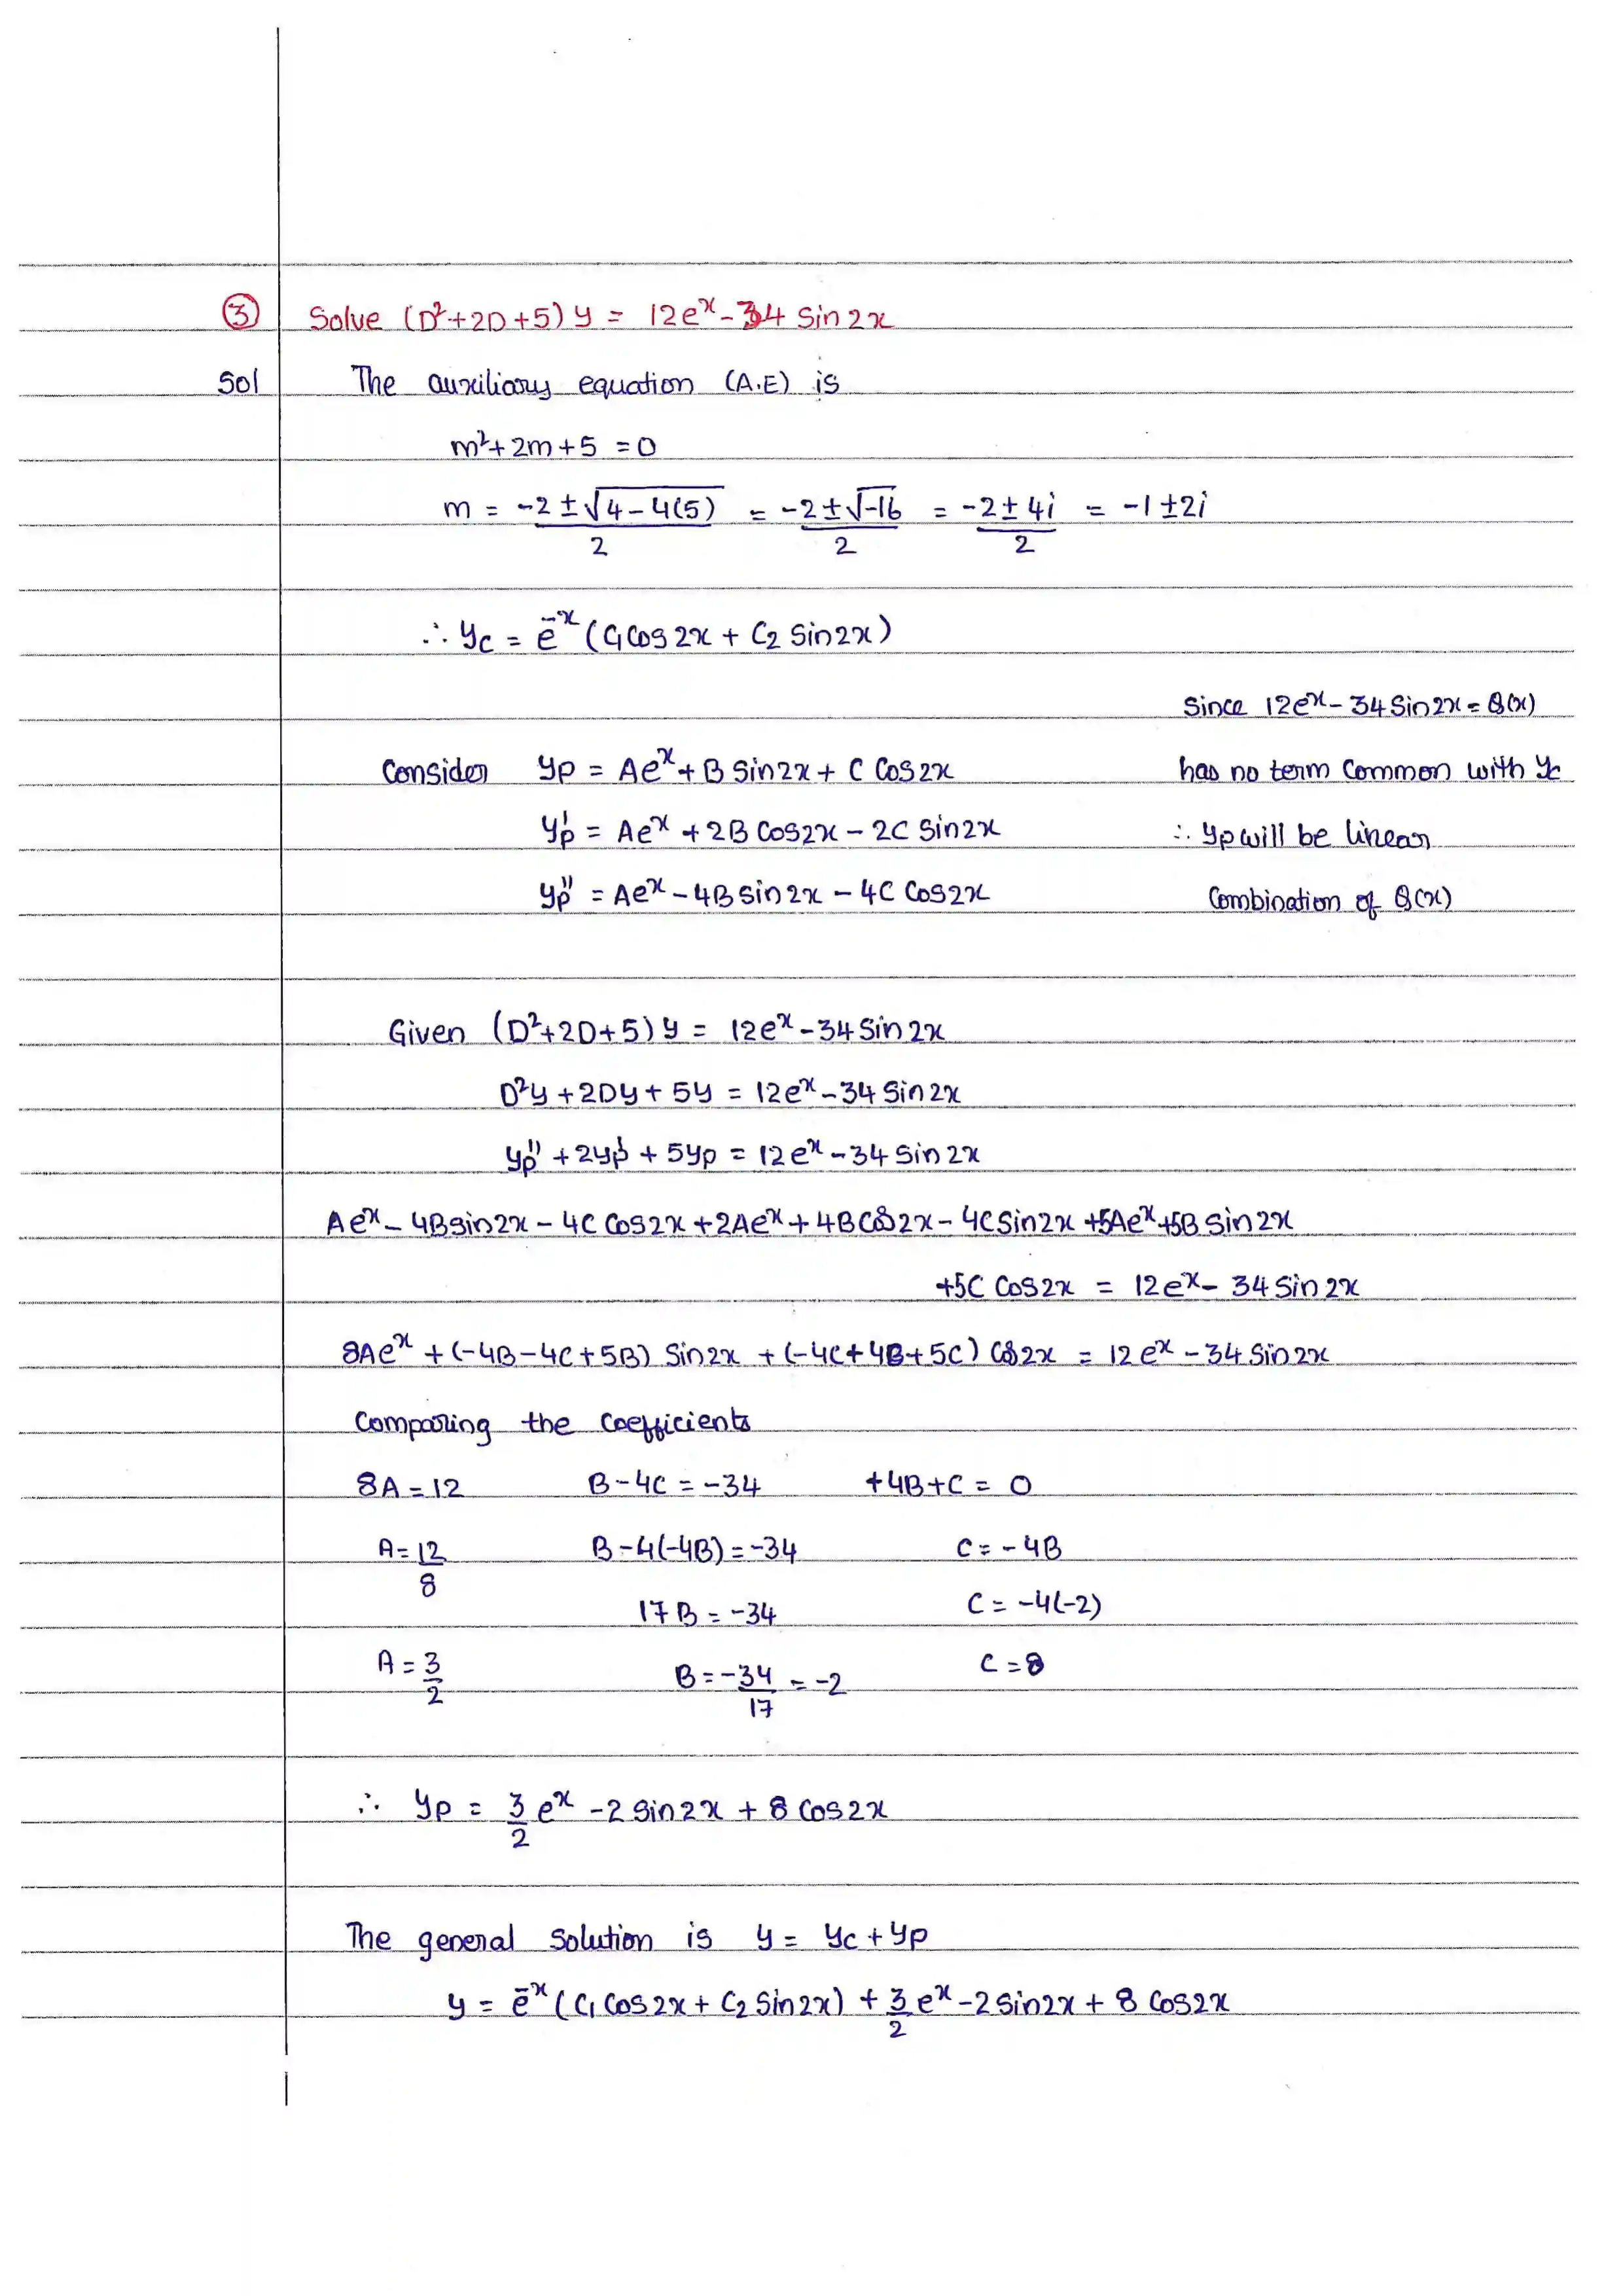 ③ Solve (D²+2D+5) y = 12eˣ - 34 Sin 2x
Sol The auxiliary equation (A.E) is
m²+2m+5 = 0
m = (-2 ± √(4-4(5)))/2 = (-2 ± √-16)/2 = (-2 ± 4i)/2 = -1 ± 2i
∴ yc = e⁻ˣ (C₁ Cos 2x + C₂ Sin 2x)
Since 12eˣ - 34 Sin 2x = Q(x)
Consider yp = Aeˣ + B Sin 2x + C Cos 2x has no term common with yc
yp' = Aeˣ + 2B Cos 2x - 2C Sin 2x ∴ yp will be linear
yp'' = Aeˣ - 4B Sin 2x - 4C Cos 2x Combination of Q(x)
Given (D²+2D+5) y = 12eˣ - 34 Sin 2x
D²y + 2Dy + 5y = 12eˣ - 34 Sin 2x
yp'' + 2yp' + 5yp = 12eˣ - 34 Sin 2x
Aeˣ - 4B Sin 2x - 4C Cos 2x + 2Aeˣ + 4B Cos 2x - 4C Sin 2x + 5Aeˣ + 5B Sin 2x
+5C Cos 2x = 12eˣ - 34 Sin 2x
8Aeˣ + (-4B-4C+5B) Sin 2x + (-4C+4B+5C) Cos 2x = 12eˣ - 34 Sin 2x
Comparing the Coefficients
8A = 12 B - 4C = -34 +4B+C = 0
A = 12/8 B - 4(-4B) = -34 C = -4B
17B = -34 C = -4(-2)
A = 3/2 B = -34/17 = -2 C = 8
∴ yp = 3/2 eˣ - 2 Sin 2x + 8 Cos 2x
The general Solution is y = yc + yp
y = e⁻ˣ (C₁ Cos 2x + C₂ Sin 2x) + 3/2 eˣ - 2 Sin 2x + 8 Cos 2x